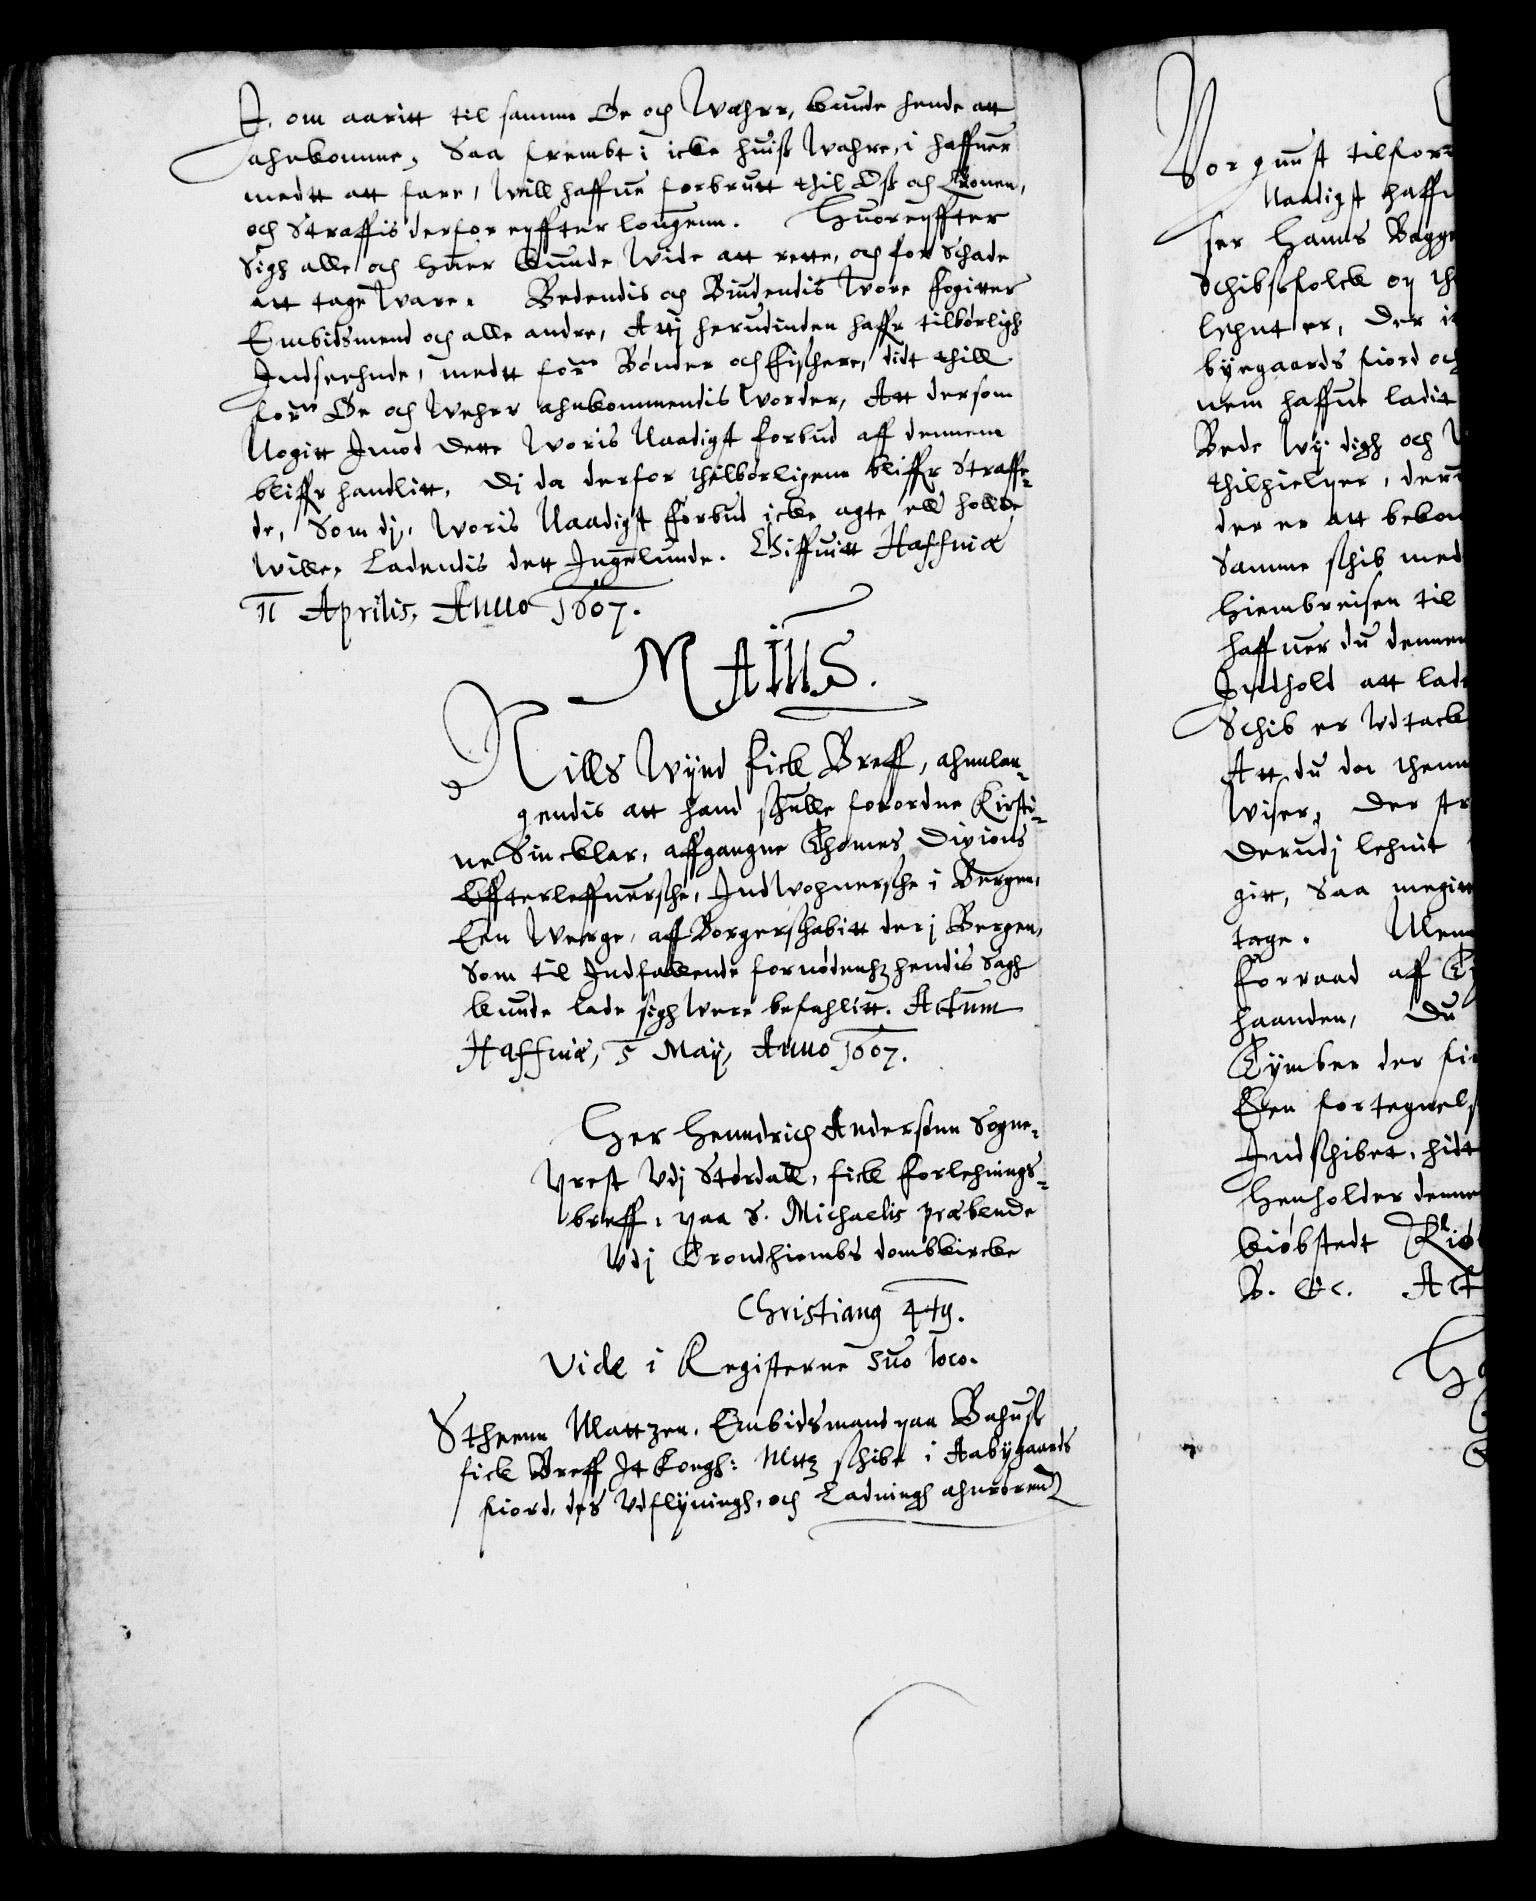 J. om aaritt til samme Øe och Wehrr, kunde hende att
ahnkomme, Saa frembt i icke huiss Wahre, i haffuer
medtt att fare, Will haffue forbrutt thil Oss och Cronen,
och Straffis derfor eyffter lougenn. Huoreyffter
Sigh alle och huer kunde Wide att rette, och for Schade
att tage Ware. Bedendis och Biudendis Wore fogitter
Embidsmend och alle andre, Attj herudinden haffr tilbørligh
Indseehnde, medtt forne Bønder och Fischere, didt thill
forne Øe och Wehrr ahnkommendis Worder, Att dersom
Nogitt Imod dette Woris Naadigst forbud aff dennem
bliffr handlitt, Dj da derfor thilbørligenn bliffr Straffe-
de, Som dj, Woris Naadigst Forbud icke agte ell holde
Wille, Ladendis dett Ingelunde. Giffuitt Haffniæ
11 Aprilis, Anno 1607.
MAIUS.
Nills Wijnd fick Breff, ahnlan-
gendis att hand schulle forordne Kirsti-
ne Sincklar, affgangne Thomes Divions
Effterleffuersche, Indwohnersche i Bergen,
Een Werge, aff Borgerschabitt der j Bergen,
Som til Indfallende fornødenhz hendis Sagh
kunde lade sigh Were befahlitt. Actum
Haffniæ, 5 Maij, Anno 1607.
Her Henndrich Andersønn Sogne-
prest Udj Stördall, fick Forlehnings-
breff, paa S. Michaelis præbende
Udj Trondhiembs dombkircke
Christiang 4tg.
Vide i Registerne suo loco.
Stheenn Mattzen, Embidsmand paa Bahuss
fick Breff It Kongh: Mttz schibe i Aabygaards
fiord, des Udflijningh, och Ladningh ahnrörend
Vor gunst tilforn
Naadigst haffu
ser Hanns Bagge
Schibsfolck op th
lehnt er, Der i
byegaards fiord och
nem haffue ladit
Bede Wij digh och
thilhielper, der
der er att bekom
Samme schib med
Hiembreisen til
haffuer du dennem
Indhold att lad
Schib er Udtack
Att du da them
Wiser, Der st
Derudj lehnit
gitt, Saa megitt
tage. Men
forraad aff
haanden, Du
Tijmber der fi
Een fortegnels
Indschibet, hidt
Henholder denne
kiøbstedt Kiøb
B. &c. Act